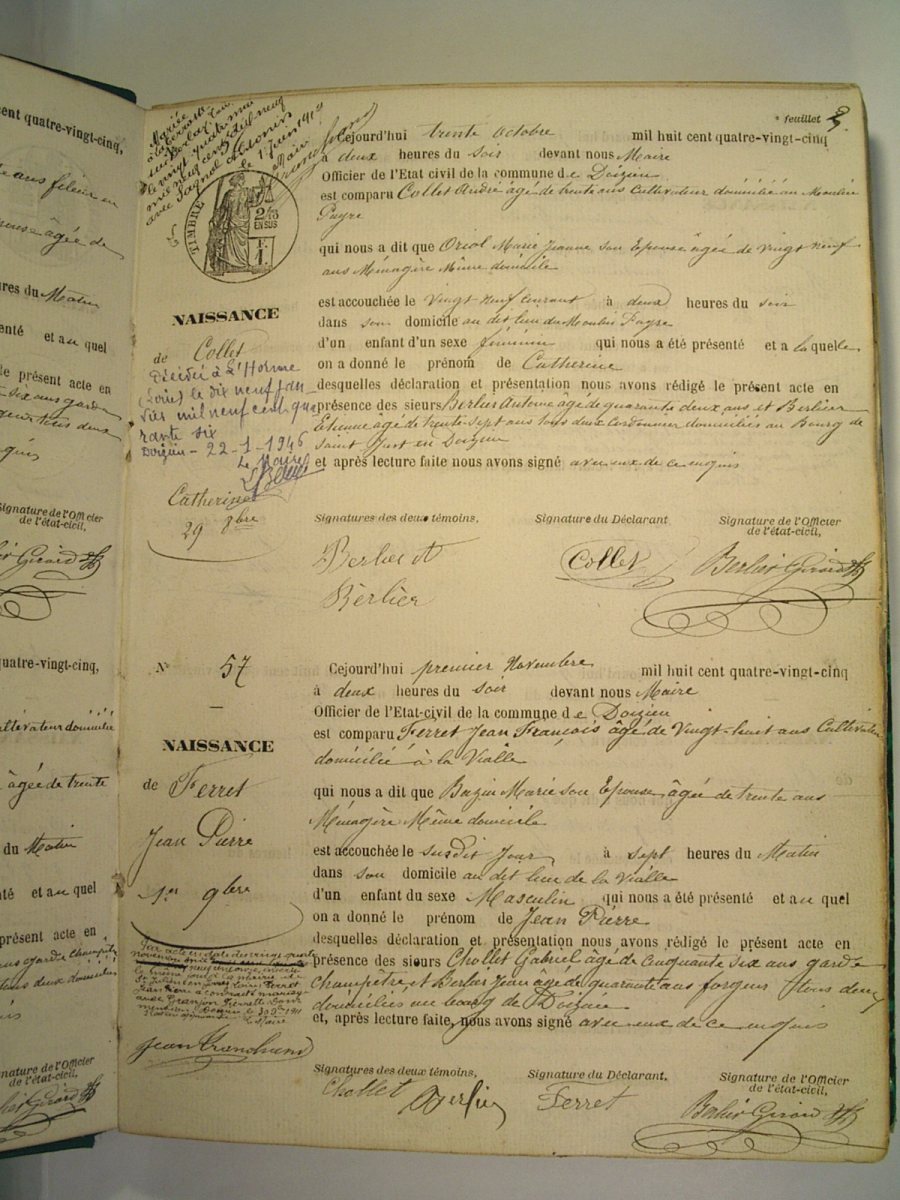 cent quatre-vingt-cinq,
épouse âgée de
du Matin
enté et au quel
le présent acte en
Signature de l'Officier
de l'état-civil,
uatre-vingt-cinq,
cultivateur domicilié
âgée de trente
du Matin
té et au quel
présent acte en
ans garde champêtre
tous deux domiciliés
gnature de l'Officier
de l'état-civil,
feuillet 3.
Mariée
le vingt quatre mai
mil neuf cent neuf
avec
le 1er juin 1909
Le Maire
TIMBRE
2/10
EN SUS
NAISSANCE
de Collet
Décédée à L'Horme
(Loire) le dix neuf jan
vier mil neuf cent qua
rante six
Doizieu - 22-1-1946
Le Maire
Catherine
29 8bre
Cejourd'hui trente octobre mil huit cent quatre-vingt-cinq
à deux heures du soir devant nous Maire
Officier de l'Etat civil de la commune de Doizieu
est comparu Collet André âgé de trente ans Cultivateur domicilié au Moulin
Payre
qui nous a dit que Oriol Marie Jeanne son Epouse âgée de vingt neuf
ans Ménagère Même domicile
est accouchée le vingt neuf courant à deux heures du soir
dans son domicile au dit lieu du Moulin Payre
d'un enfant d'un sexe féminin qui nous a été présenté et a laquelle
on a donné le prénom de Catherine
desquelles déclaration et présentation nous avons rédigé le présent acte en
présence des sieurs Berlier Antoine âgé de quarante deux ans et Berlier
Etienne âgé de trente-sept ans tous deux Cordonnier domiciliés au Bourg de
Saint Just en Doizieu
et après lecture faite nous avons signé avec eux de ce enquis
Signatures des deux témoins,
Signature du Déclarant
Signature de l'Officier
de l'état-civil,
Berlier A
Collet
Berlier Girard
Berlier
N° 57
NAISSANCE
de Ferret
Jean Pierre
1er 9bre
Cejourd'hui premier Novembre mil huit cent quatre-vingt-cinq
à deux heures du soir devant nous Maire
Officier de l'Etat-civil de la commune de Doizieu
est comparu Ferret Jean François âgé de vingt-huit ans Cultivateur
domicilié à la Vialle
qui nous a dit que Bazin Marie son Epouse âgée de trente ans
Ménagère Même domicile
est accouchée le susdit Jour à sept heures du Matin
dans son domicile au dit lieu de la Vialle
d'un enfant du sexe Masculin qui nous a été présenté et au quel
on a donné le prénom de Jean Pierre
desquelles déclaration et présentation nous avons rédigé le présent acte en
présence des sieurs Chollet Gabriel âgé de Cinquante six ans garde
champêtre et Berlier Jean âgé de quarante ans forgeur tous deux
domiciliés au bourg de Doizieu
et, après lecture faite, nous avons signé avec eux de ce enquis
Par acte en date du vingt quatre
novembre mil
Signatures des deux témoins,
Signature du Déclarant,
Signature de l'Officier
de l'état-civil,
Chollet
Berlier
Ferret
Berlier Girard